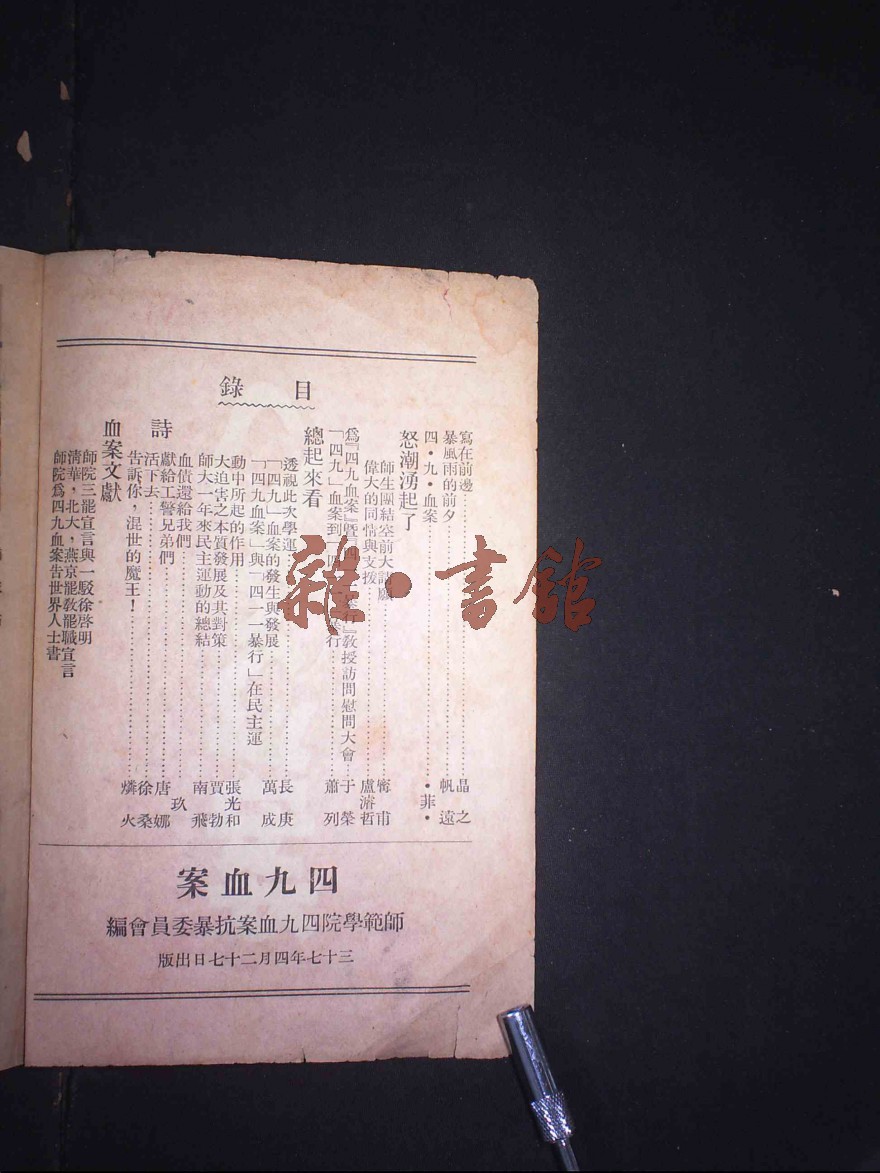 目錄
寫在前邊……晶之
暴風雨的前夕……帆遠
四·九·血案……·菲·
怒潮湧起了
師生團結空前大請願……甯甫
偉大的同情與支援……盧濬哲
爲『四九血案』暨『四一一暴行』教授訪問慰問大會……于榮
「四九」血案到「四一一」暴行……蕭列
總起來看
透視此次學運……長庚
「四九」血案的發生與發展……萬成
「四九血案」與「四一一暴行」在民主運
動中所起的作用……張光和
大迫害之本質發展及其對策……賈勃
師大一年來民主運動的總結……南飛
詩
血債還給我們……玖
獻給工警兄弟們……唐娜
活下去……徐桑
告訴你，混世的魔王！……燐火
血案文獻
師院三罷宣言與一駁徐啓明
清華，北大，燕京罷教罷職宣言
師院爲四九血案告世界人士書
四九血案
師範學院四九血案抗暴委員會編
三十七年四月二十七日出版
雜·書館